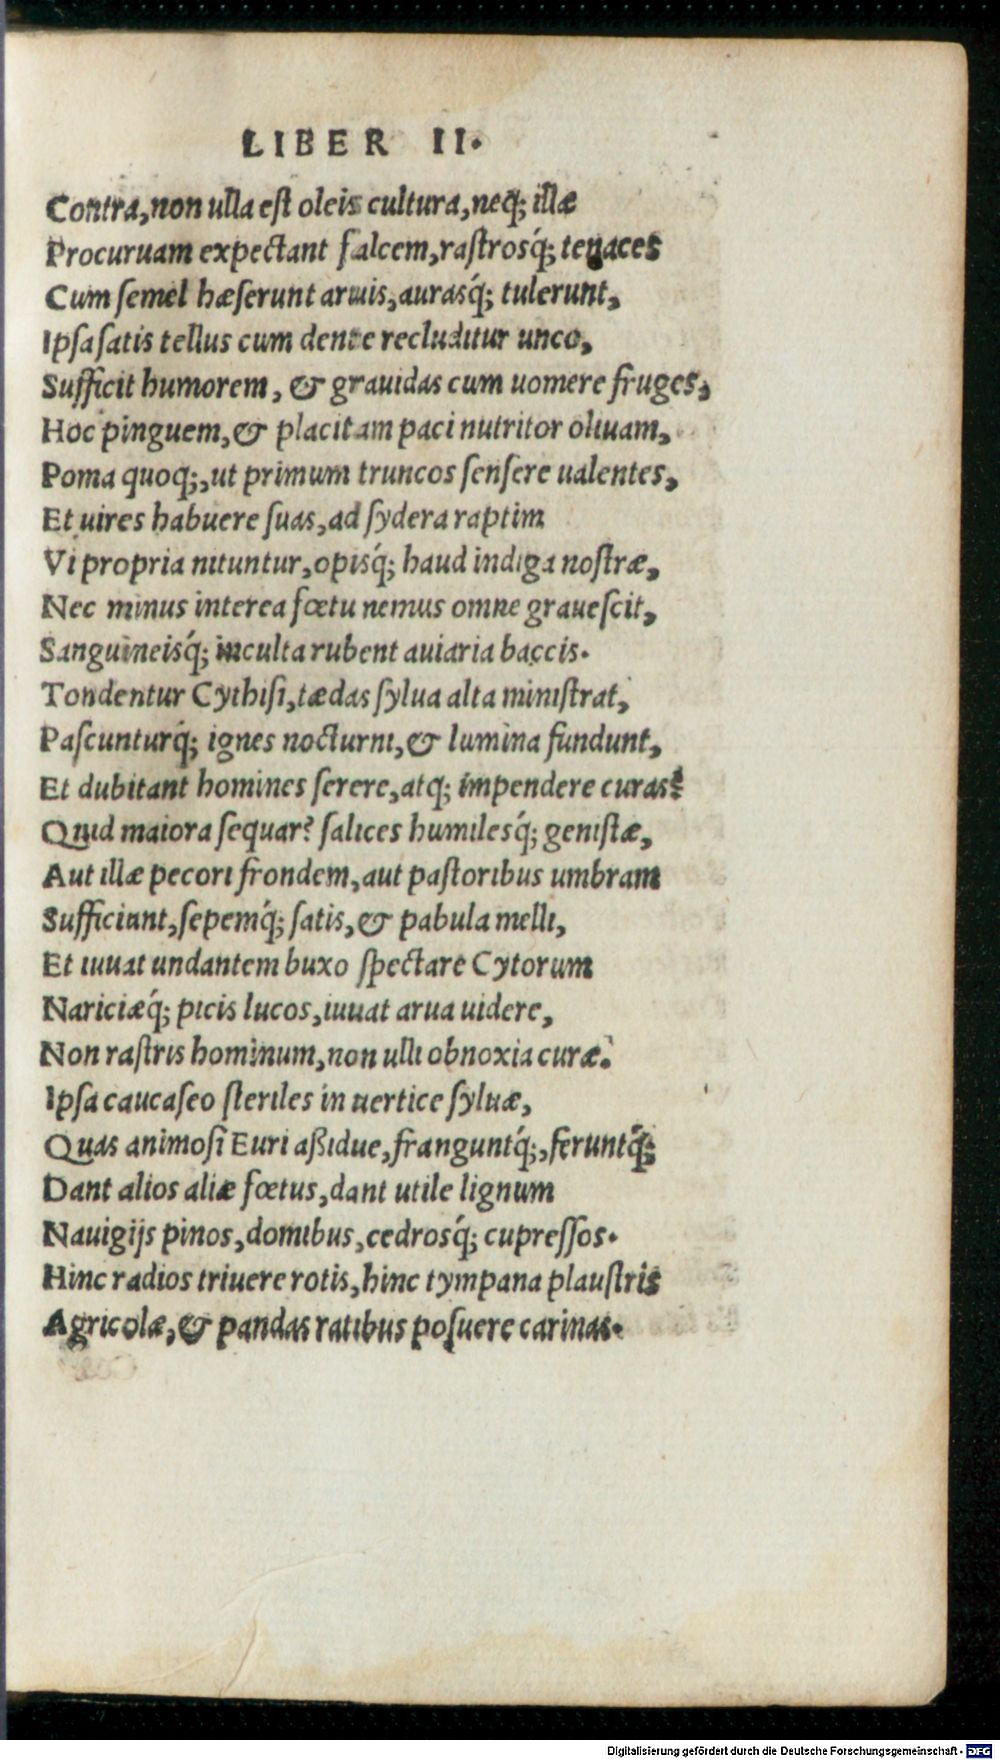 LIBER II.
Contra, non ulla est oleis cultura, neq; illæ
Procuruam expectant falcem, rastrosq́; tenaces
Cum semel hæserunt aruis, aurasq́; tulerunt,
Ipsa satis tellus cum dente recluditur unco,
Sufficit humorem, & grauidas cum uomere fruges,
Hoc pinguem, & placitam paci nutritor oliuam,
Poma quoq;, ut primum truncos sensere ualentes,
Et uires habuere suas, ad sydera raptim
Vi propria nituntur, opisq́; haud indiga nostræ,
Nec minus interea fœtu nemus omne grauescit,
Sanguineisq́; inculta rubent auiaria baccis.
Tondentur Cythisi, tædas sylua alta ministrat,
Pascunturq́; ignes nocturni, & lumina fundunt,
Et dubitant homines serere, atq; impendere curas?
Quid maiora sequar? salices humilesq́; genistæ,
Aut illæ pecori frondem, aut pastoribus umbram
Sufficiunt, sepemq́; satis, & pabula melli,
Et iuuat undantem buxo spectare Cytorum
Nariciæq́; picis lucos, iuuat arua uidere,
Non rastris hominum, non ulli obnoxia curæ.
Ipsa caucaseo steriles in uertice syluæ,
Quas animosi Euri aßidue, franguntq́;, feruntq́;
Dant alios aliæ fœtus, dant utile lignum
Nauigijs pinos, domibus, cedrosq́; cupressos.
Hinc radios triuere rotis, hinc tympana plaustris
Agricolæ, & pandas ratibus posuere carinas.
Digitalisierung gefördert durch die Deutsche Forschungsgemeinschaft - DFG